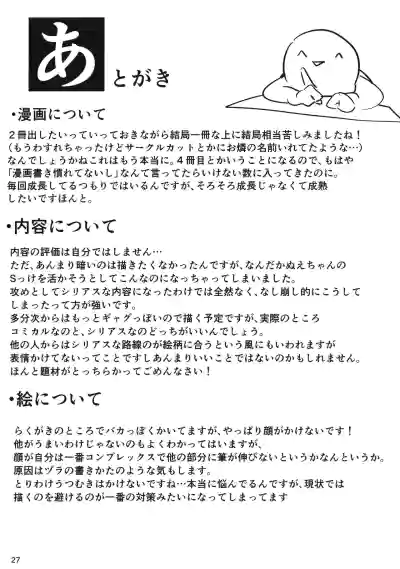 あとがき
・漫画について
2冊出したいっていっておきながら結局一冊な上に結局相当苦しみましたね！
（もうわすれちゃったけどサークルカットとかにお燐の名前いれてたような…）
なんでしょうかねこれはもう本当に。4冊目とかいうことになるので、もはや
「漫画書き慣れてないし」なんて言ってたらいけない数に入ってきたのに。
毎回成長してるつもりではいるんですが、そろそろ成長じゃなくて成熟
したいですほんと。
・内容について
内容の評価は自分ではしません…
ただ、あんまり暗いのは描きたくなかったんですが、なんだかぬえちゃんの
Sっけを活かそうとしてこんなのになっちゃってしまいました。
攻めとしてシリアスな内容になったわけでは全然なく、なし崩し的にこうして
しまったって方が強いです。
多分次からはもっとギャグっぽいので描く予定ですが、実際のところ
コミカルなのと、シリアスなのどっちがいいんでしょう。
他の人からはシリアスな路線のが絵柄に合うという風にもいわれますが
表情かけてないってことですしあんまりいいことではないのかもしれません。
ほんと題材がとっちらかっててごめんなさい！
・絵について
らくがきのところでバカっぽくかいてますが、やっぱり顔がかけないです！
他がうまいわけじゃないのもよくわかってはいますが、
顔が自分は一番コンプレックスで他の部分に筆が伸びないというかなんというか。
原因はヅラの書きかたのような気もします。
とりわけうつむきはかけないですね…本当に悩んでるんですが、現状では
描くのを避けるのが一番の対策みたいになってしまってます
27